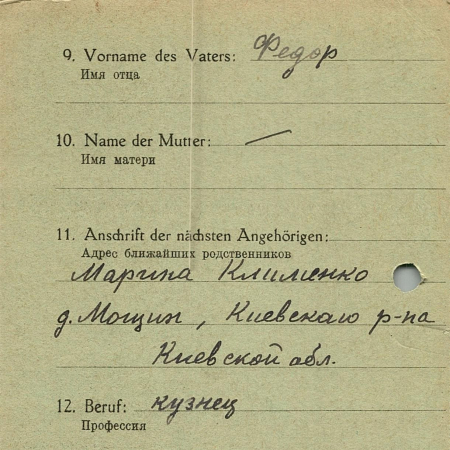 9. Vorname des Vaters: Федор
Имя отца
10. Name der Mutter: —
Имя матери
11. Anschrift der nächsten Angehörigen:
Адрес ближайших родственников
Марина Клименко
д. Мощин, Киевскаго р-на
Киевской обл.
12. Beruf: кузнец
Профессия